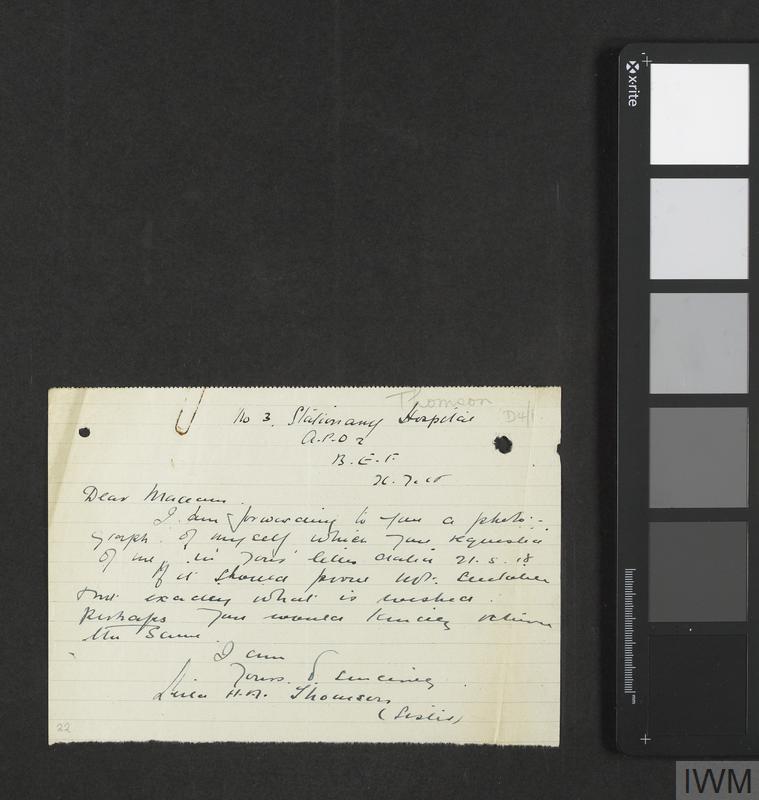 Thomson
D4/1.
No 3. Stationary Hospital
A.P.O 2
B.E.F.
Dear Madam.
I am forwarding to you a photo-
graph of myself which you requested
of me in your letter dated 21.5.18
If it should prove not suitable
exactly what is wished.
Perhaps you would kindly return
the same.
I am
Yours sincerely.
H.A. Thomson
(Sister)
22
x-rite
IWM